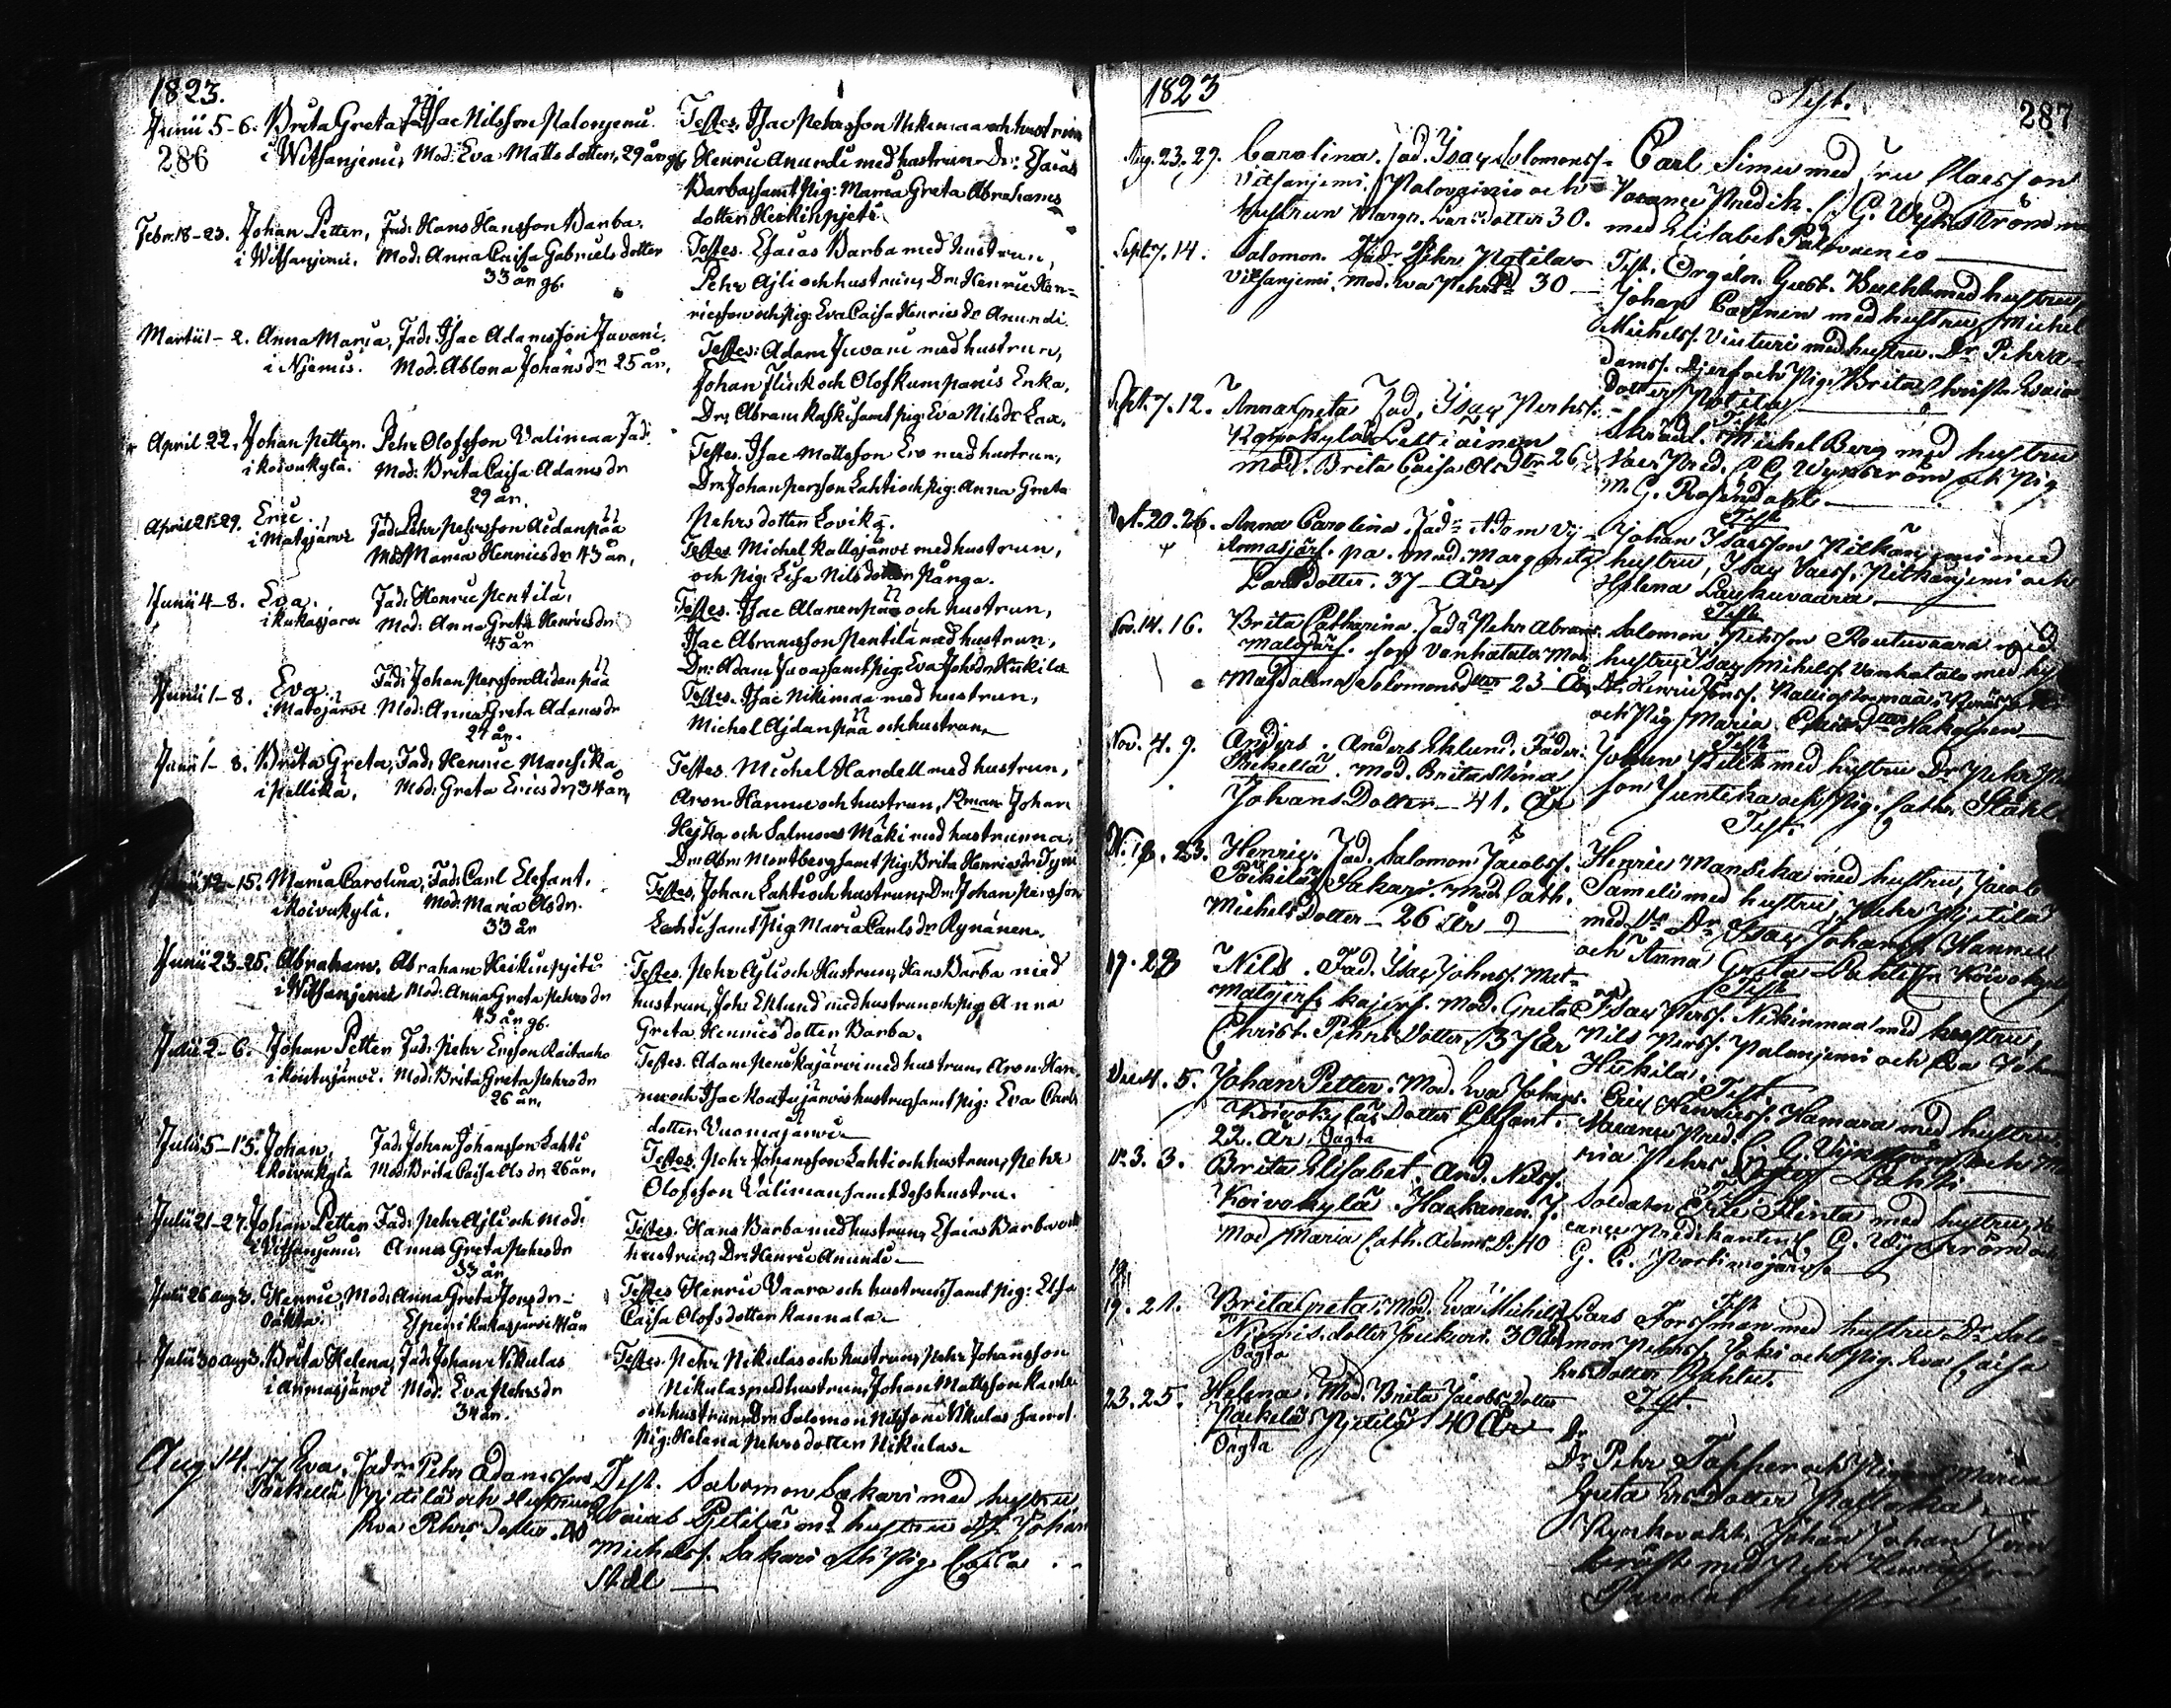 1823.
286
Junii 5-6. Brita Greta, Fad: Isac Nilsson Palonjemi.
i Witsanjemi, Mod: Eva Matts dotter, 29 år gl.
Testes. Isac Pehrsson Nikimaa och hustrun
Henric Anundi med hustrun Dr: Esaias
Barba, samt Pig: Maria Greta Abrahams
dotter Heikinpjeti
Febr. 18-23. Johan Petter, Fad: Hans Hansson Barba.
i Witsanjemi. Mod: Anna Caisa Gabriels dotter
33 år gl.
Testes. Esaias Barba med hustrun,
Pehr Ajli och hustrun, Dr: Henric Hen-
ricsson och Pig: Eva Caisa Henrics dr Anundi.
Martii 1-2. Anna Maria, Fad: Isac Adamsson Juvani.
i Njemis. Mod: Ablona Johans dr 25 år,
Testes: Adam Juvani med hustrun,
Johan Flink och Olof Kumpanis Enka,
Dr: Abram Kaski samt pig: Eva Nils dr Lax.
April 22. Johan Petter. Pehr Olofsson Valimaa Fad:
i Koivukylä. Mod: Brita Caisa Adams dr
29 år.
Testes. Isac Mattsson Ero med hustrun,
Dr: Johan Persson Lahti och Pig: Anna Greta
Pehrs dotter Lovika.
April 21-29. Eric.
i Matojärvi Fad: Pehr Pehrsson Aidanpää
Mod: Maria Henrics dr 43 år,
Testes Michel Kallojärvi med hustrun,
och Pig: Lisa Nils dotter Pånga.
Junii 4-8. Eva. Fad: Henric Pentilä,
i Kukasjärvi Mod: Anna Greta Henrics dr
45 år
Testes. Isac Alanenpää och hustrun,
Isac Abramsson Pentilä med hustrun,
Dr: Adam Juva, samt Pig: Eva Johs dr Hukila
Junii 1-8. Eva. Fad: Johan Persson Aidanpää
i Matojärvi Mod: Anna Greta Adams dr
27 år.
Testes. Isac Nikimaa med hustrun,
Michel Ajdanpää och hustrun.
Junii 1-8. Brita Greta, Fad: Henric Mansika
i Pellika, Mod: Greta Erics dr, 34 år,
Testes. Michel Hardell med hustrun,
Aron Hannu och hustrun, 12 man Johan
Hejsta och Salmons Mäki med hustrurna,
Dr: Abr: Montberg samt Pig: Brita Henrics dr
12-15. Maria Carolina, Fad: Carl Elefant.
i Koivukylä. Mod: Maria Ols dr.
33 år
Testes, Johan Lahti och hustrun, Dr: Johan Persson
Lahti samt Pig Maria Carls dr Rynänen.
Junii 23-25. Abraham. Abraham Heikinpjeti
i Witsanjemi Mod: Anna Greta Pehrs dr
43 år gl.
Testes. Pehr Ajli och Hustrun, Hans Barba med
hustrun, Joh: Eklund med hustrun och Pig Anna
Greta Henrics dotter Barba.
Julii 2-6. Johan Petter Fad: Pehr Ersson Raitaaho
i Kontujärvi. Mod: Brita Greta Pehrs dr
26 år.
Testes. Adam Penskajärvi med hustrun, Aron Han-
nu och Isac Kontujärvis hustrur samt Pig: Eva Carls
dotter Vuomajärvi
Julii 5-15. Johan, Fad: Johan Johansson Lahti
i Koivukylä Mod: Brita Caisa Ols dr 26 år.
Testes. Pehr Johansson Lahti och hustrun, Pehr
Olofsson Valimaa samt dess hustru.
Julii 21-27. Johan Petter Fad: Pehr Ajli och Mod:
i Vitsanjemi. Anna Greta Pehrs dr
33 år
Testes. Hans Barba med hustrun, Esaias Barba och
hustrun, Dr: Henric Anundi.
Julii 26 aug 3. Henric, Mod: Anna Greta Jons dr
Oäkta. Esperi Kukasjärvi 41 år
Testes Henric Vaara och hustrun, samt Pig: Elsa
Caisa Olofsdotter Kannala.
Julii 30 aug 3. Brita Helena, Fad: Johan Nikulas
i Armasjärvi Mod: Eva Pehrs dr
34 år.
Testes. Pehr Nikulas och hustrun, Pehr Johansson
Nikulas med hustrun, Johan Mattsson
och hustrun, Dr: Salomon Nilsson Nikulas samt
Pig: Helena Pehrs dotter Nikulas.
Aug. 14-17 Eva. Fadren Pehr Adamsson
Päkkilä Pjetilä och Hustrun
Eva Pehrs dotter. 40
Test. Salomon Sakari med hustru
Esaias Pjetilä med hustru Dr. Johan
Michelss. Sakari och Pig. Caisa
Ståhl
1823
Test.
287
Aug. 23. 29. Carolina. Fad. Isac Solomonss.
Vitsanjemi. Palovainio och
hustrun Margr. Larsdotter 30.
Carl Simu med fru Claesson
Vacance Predik. C. G. Wykström
med Elisabet Palovainio
Sept. 7. 14. Salomon. Fadr. Pehr Potila
Vitsanjemi. Mod. Eva Pehrs Dr 30
Test. Orgeln. Gust. Buckt med hustru,
Johan Castrén med hustru, Michel
Michelss. Vinturi med hustru. Dr. Pehr A-
damss. Djerf och Pig. Brita
Dotter Potila
Sept. 7. 12. Anna Greta Fad. Isac Pehrss.
Koivokylä Leitiäinen
Mod. Brita Caisa Ols Dtr 26
Test
Skrädd. Michel Berg med hustru
Vac. Pred. C. G. Wykström och Pig
M. G. Rosendahl
Oct. 20. 26. Anna Carolina. Fadr. Adam Vy-
Armasjärf. pa. Mod. Margareta
Lars dotter. 37 År
Test
Johan Isacsson Pitkänjemi med
hustru, Isac Isacs. Pitkänjemi och
Helena Laukuvaara
Nov. 14. 16. Brita Catharina. Fadr. Pehr Abrams-
Matojärf. son Vanhatalo Mod.
Magdalena Solomonsdtter 23 År
Test
Salomon Pehrsson Routuvaara med
hustru, Isac Michels. Vanhatalo med
och Pig. Maria
Nov. 4. 9. Anders. Anders Eklund. Fader.
Mod. Brita Stina
Johans Dotter 41. År
Test
Johan med hustru Dr. Pehr
son Juntika och Pig. Cath. Ståhl.
Nov. 18. 23. Henric. Fad. Salomon Jacobss.
Päkilä Sakari. Mod. Cath.
Michels Dotter 26 År
Test.
Henric Mansika med hustru, Jacob
Sameli med hustru, Pehr Pjetilä
med Dr. Isac Johanss. Hannu
och Anna Greta Lahti fr. Koivokylä
19. 23 Nils. Fad. Isac Johnss. Mat-
Matojerf. kajerf. Mod. Greta
Christ. Pehrs Dotter 37 År
Test
Isac Perss. Nikinmaa med hustru,
Nils Perss. Palonjemi och Eva
Hukila.
Dec. 4. 5. Johan Petter. Mod. Eva Johans
Koivokylä Dotter Elfant.
22. År. Oägta
Test.
Eric Henricss. Hamara med hustru,
Vacance Pred. C. G. Wykström och
ria Pehrs Dotter Lahti
Dr. 3. 3. Brita Elisabet. And. Nilss.
Koivokylä. Haakanen. F.
Mod Maria Cath. Adams D. 40
Soldaten Eric Hinta med hustru,
cance Predikanten C. G. Wykström
G. C. Portimojärf.
19. 21. Brita Greta. Mod. Eva Michels
Niemis. dotter 30 År
Oägta
Test
Lars Forssman med hustru Dr. Salo-
mon Pehrss. Jaks och Pig. Eva Caisa
Ers Dotter Bahtu.
23. 25. Helena. Mod. Brita Jacobs Dotter
Päckilä Pjetilä. 40 År
Oägta
Test.
Dr.
Dr. Pehr Tapper och Pigan Maria
Greta Ers Dotter
Kyrkovakt. Johan Johan
med Pehr Henricsson
hustru